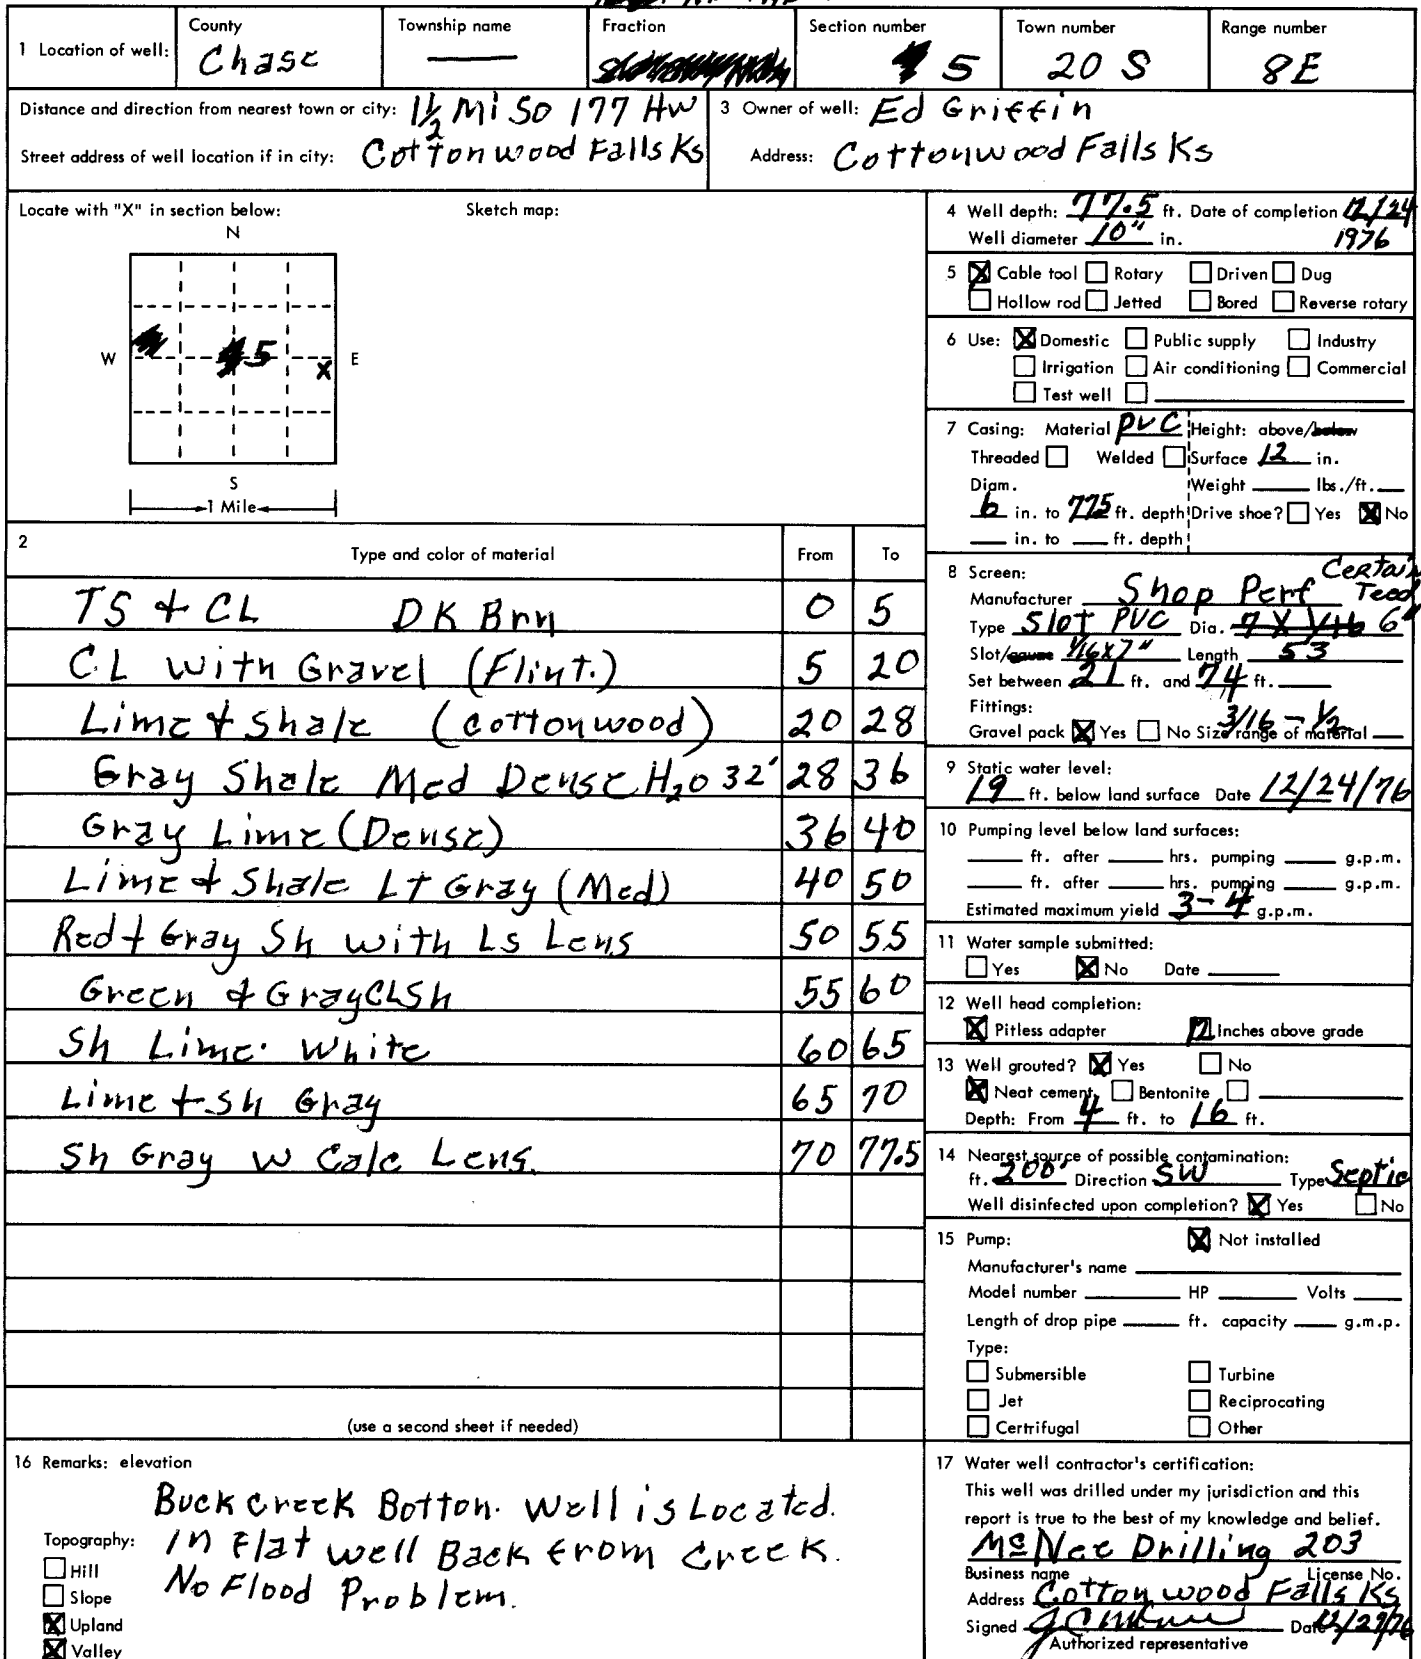 1 Location of well:
County
Chase
Township name
—
Fraction
Section number
5
Town number
20 S
Range number
8E
Distance and direction from nearest town or city: 1½ Mi So 177 Hw
Street address of well location if in city: Cottonwood Falls Ks
3 Owner of well: Ed Griffin
Address: Cottonwood Falls Ks
Locate with "X" in section below:
Sketch map:
N
W
5
X
E
S
1 Mile
2
Type and color of material
From
To
TS + CL DK Brn 0 5
CL with Gravel (Flint.) 5 20
Lime + Shale (cottonwood) 20 28
Gray Shale Med Dense H2O 32' 28 36
Gray Lime (Dense) 36 40
Lime + Shale Lt Gray (Med) 40 50
Red + Gray Sh with Ls Lens 50 55
Green + Gray CL Sh 55 60
Sh Lime. White 60 65
Lime + Sh Gray 65 70
Sh Gray w Calc Lens. 70 77.5
(use a second sheet if needed)
4 Well depth: 77.5 ft. Date of completion 12/24
Well diameter 10" in. 1976
5 [X] Cable tool [ ] Rotary [ ] Driven [ ] Dug
[ ] Hollow rod [ ] Jetted [ ] Bored [ ] Reverse rotary
6 Use: [X] Domestic [ ] Public supply [ ] Industry
[ ] Irrigation [ ] Air conditioning [ ] Commercial
[ ] Test well [ ]
7 Casing: Material PVC Height: above/below
Threaded [ ] Welded [ ] Surface 12 in.
Diam. Weight ___ lbs./ft. ___
6 in. to 775 ft. depth Drive shoe? [ ] Yes [X] No
___ in. to ___ ft. depth
8 Screen: Certain
Manufacturer Shop Perf Teed
Type Slot PVC Dia. 7 X 1/16 6"
Slot/gauze 1/16x7" Length 53
Set between 21 ft. and 74 ft. ___
Fittings: 3/16 - 1/2
Gravel pack [X] Yes [ ] No Size range of material ___
9 Static water level:
19 ft. below land surface Date 12/24/76
10 Pumping level below land surfaces:
___ ft. after ___ hrs. pumping ___ g.p.m.
___ ft. after ___ hrs. pumping ___ g.p.m.
Estimated maximum yield 3-4 g.p.m.
11 Water sample submitted:
[ ] Yes [X] No Date ___
12 Well head completion:
[X] Pitless adapter 12 Inches above grade
13 Well grouted? [X] Yes [ ] No
[X] Neat cement [ ] Bentonite [ ]
Depth: From 4 ft. to 16 ft.
14 Nearest source of possible contamination:
ft. 200' Direction SW Type Septic
Well disinfected upon completion? [X] Yes [ ] No
15 Pump: [X] Not installed
Manufacturer's name ___
Model number ___ HP ___ Volts ___
Length of drop pipe ___ ft. capacity ___ g.m.p.
Type:
[ ] Submersible [ ] Turbine
[ ] Jet [ ] Reciprocating
[ ] Certrifugal [ ] Other
16 Remarks: elevation
Buck Creek Botton. Well is Located.
In Flat well Back from Creek.
No Flood Problem.
Topography:
[ ] Hill
[ ] Slope
[X] Upland
[X] Valley
17 Water well contractor's certification:
This well was drilled under my jurisdiction and this
report is true to the best of my knowledge and belief.
McNee Drilling 203
Business name License No.
Address Cottonwood Falls Ks
Signed Date 12/29/76
Authorized representative